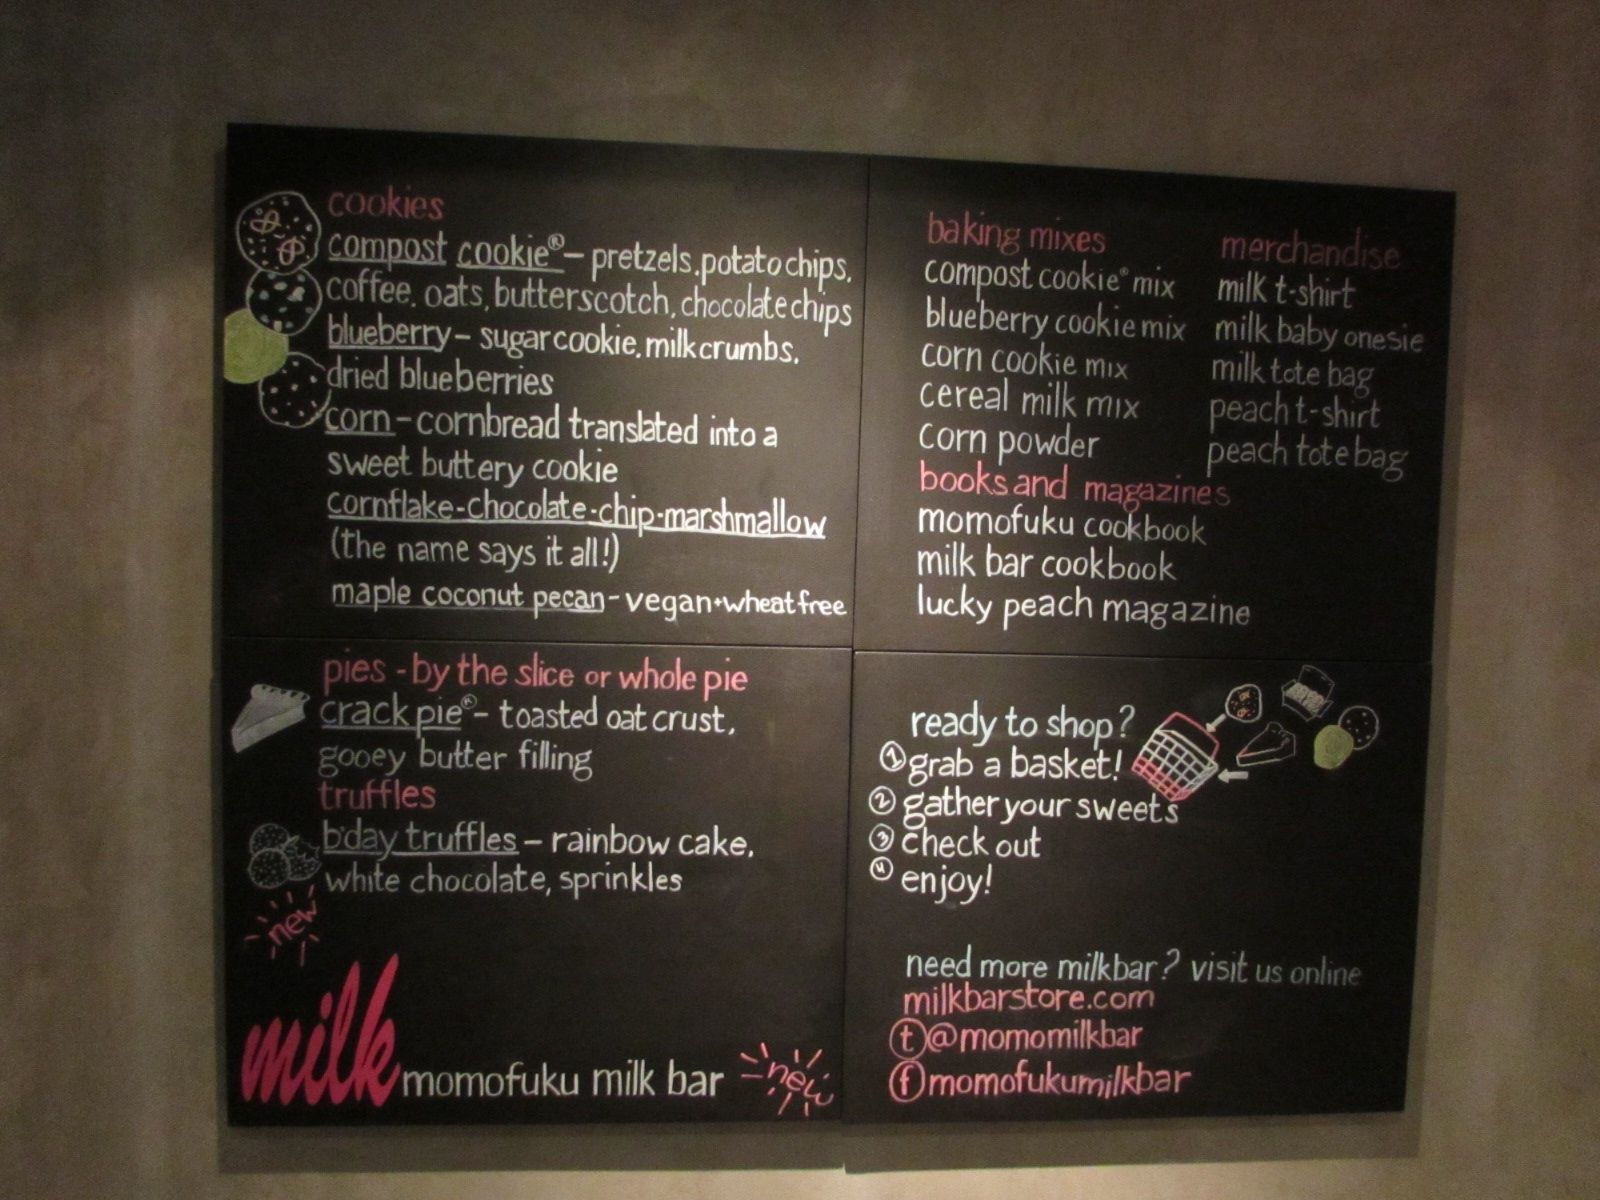 cookies
compost cookie® - pretzels, potato chips,
coffee, oats, butterscotch, chocolate chips
blueberry - sugar cookie, milk crumbs,
dried blueberries
corn - cornbread translated into a
sweet buttery cookie
cornflake-chocolate-chip-marshmallow
(the name says it all!)
maple coconut pecan - vegan + wheat free
pies - by the slice or whole pie
crack pie® - toasted oat crust,
gooey butter filling
truffles
b'day truffles - rainbow cake,
white chocolate, sprinkles
new
milk momofuku milk bar new
baking mixes
compost cookie® mix
blueberry cookie mix
corn cookie mix
cereal milk mix
corn powder
merchandise
milk t-shirt
milk baby onesie
milk tote bag
peach t-shirt
peach tote bag
books and magazines
momofuku cookbook
milk bar cookbook
lucky peach magazine
ready to shop?
1 grab a basket!
2 gather your sweets
3 check out
4 enjoy!
need more milkbar? visit us online
milkbarstore.com
t @momomilkbar
f momofukumilkbar